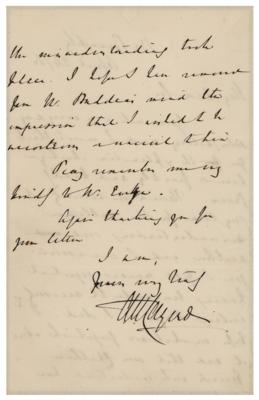 the misunderstanding took
place. I hope I have removed
from Mr. Buddens mind the
impression that I wished to be
uncourteous
Pray remember me very
kindly to Mr.
Again thanking you for
your letter
I am,
Yours very truly